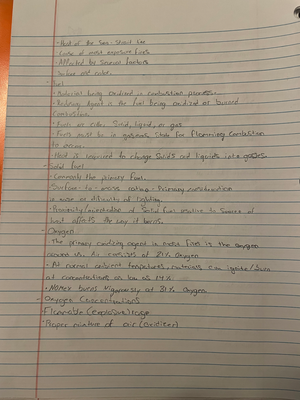 - Heat of the
- Cause of most exposure fires
- Affected by several factors
- Fuel
- Material being oxidized in combustion process.
- Reducing Agent is the fuel being oxidized or burned
combustion.
- Fuels are either Solid, liquid, or gas
- Fuels must be in gaseous State for flamming Combustion
to occur.
- Heat is required to change Solids and liquids into gases.
- Solid fuel
- Commonly the primary fuel.
Surface-to-mass ratio: Primary consideration
ease or difficulty of lighting.
- Proximity/orientation of Solid fuel relative to Source of
heat affects the way it burns.
- Oxygen
- The primary oxidizing agent in most fires is the oxygen
around us. Air consists of 21% Oxygen
- At normal ambient tempetures, materials can ignite/burn
at concentrations as low as 14%
- Nomex burns Vigorously at 31% Oxygen
- Oxygen Concentrations
- Flammable (explosive) range
- Proper mixture of air (oxidizer)